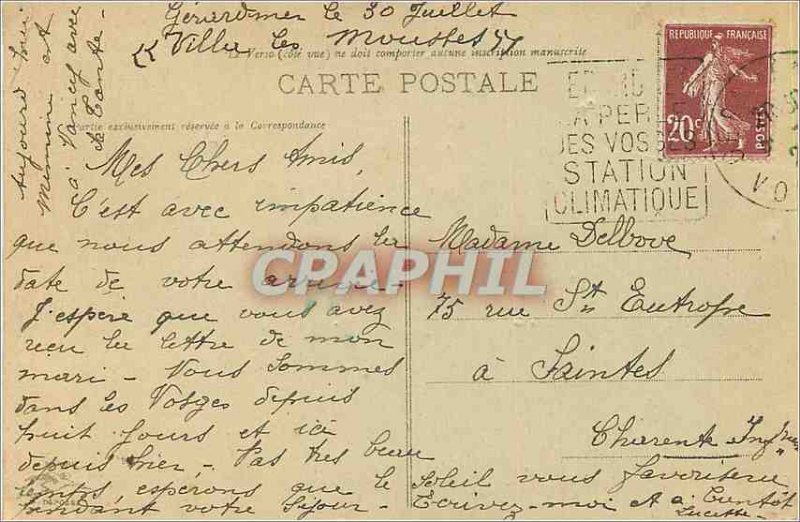 Gérardmer le 30 Juillet
Villa les Mousses
Le Verso (côté vue) ne doit comporter aucune inscription manuscrite
CARTE POSTALE
Partie exclusivement réservée à la Correspondance
Aujourd'hui
Mémine est
à Nancy avec
sa Tante.
RÉPUBLIQUE FRANÇAISE
20c
POSTES
LA PERLE
DES VOSGES
STATION
CLIMATIQUE
VO
Mes Chers Amis,
C'est avec impatience
que nous attendons la
date de votre arrivée.
J'espère que vous avez
reçu la lettre de mon
mari - Nous sommes
dans les Vosges depuis
huit jours et ici
depuis hier - Pas très beau
temps, espérons que le soleil vous favorisera
pendant votre Séjour - Écrivez-moi et à bientôt
Lucette
Madame Delbove
75 rue St Eutrope
à Saintes
Charente Infre
CPAPHIL